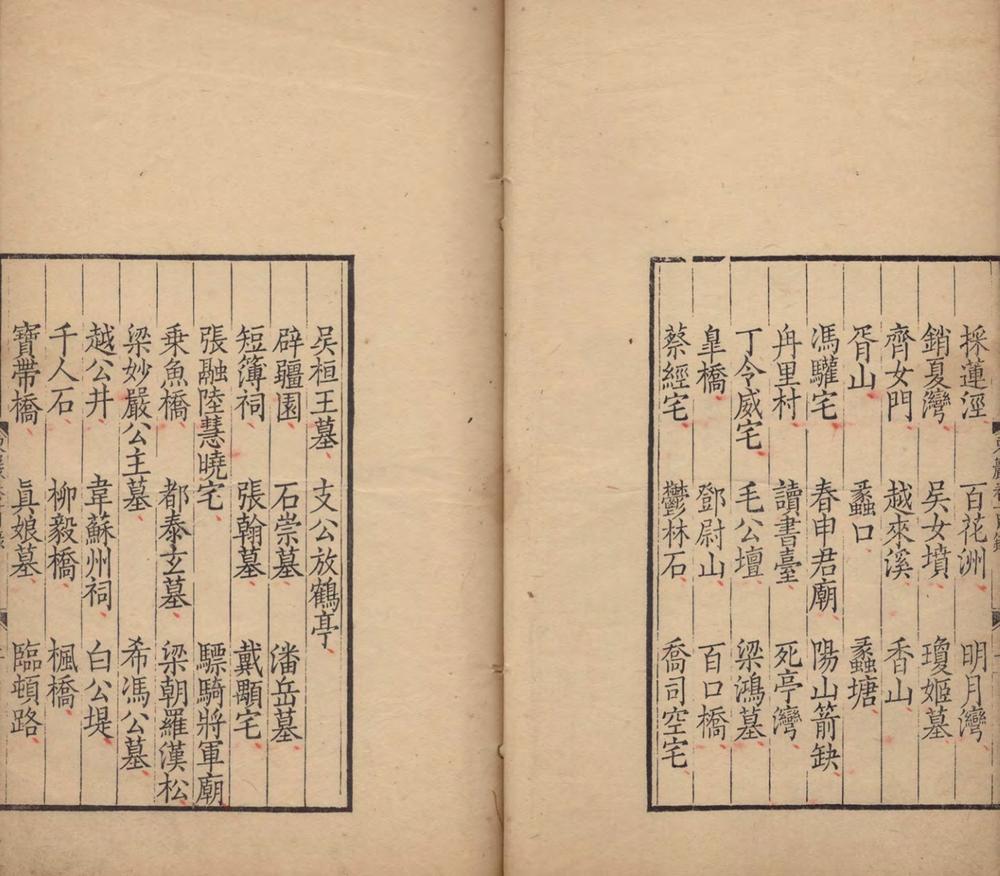 採蓮涇 百花洲 明月灣
銷夏灣 吳女墳 瓊姬墓
齊女門 越來溪 香山
胥山 蠡口 蠡塘
馮驩宅 春申君廟 陽山箭缺
冉里村 讀書臺 死亭灣
丁令威宅 毛公壇 梁鴻墓
皐橋 鄧尉山 百口橋
蔡經宅 鬱林石 喬司空宅
吳桓王墓 支公放鶴亭
辟疆園 石崇墓 潘岳墓
短簿祠 張翰墓 戴顒宅
張融陸慧曉宅 驃騎將軍廟
乗魚橋 都泰玄墓 梁朝羅漢松
梁妙嚴公主墓 希馮公墓
越公井 韋蘇州祠 白公堤
千人石 柳毅橋 楓橋
寶帶橋 眞娘墓 臨頓路